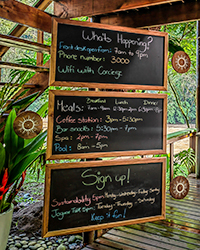 What's Happening?
Front desk open from: 7am to 9pm
Phone number: 3000
Wifi with Concierge
Breakfast Lunch Dinner
Meals:
Coffee Station: 3pm-5:30pm
Bar snacks: 5:30pm - 7pm
Spa: 2pm - 7pm
Pool: 8am - 5pm
Sign up!
Sustainability 5pm Monday-Wednesday-Friday-Sunday
Jaguar Talk
Keep it fun!